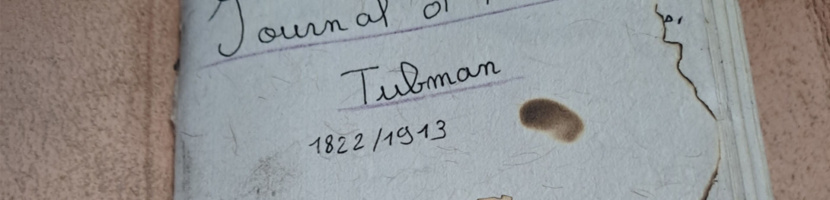 Journal of
Tubman
1822/1913